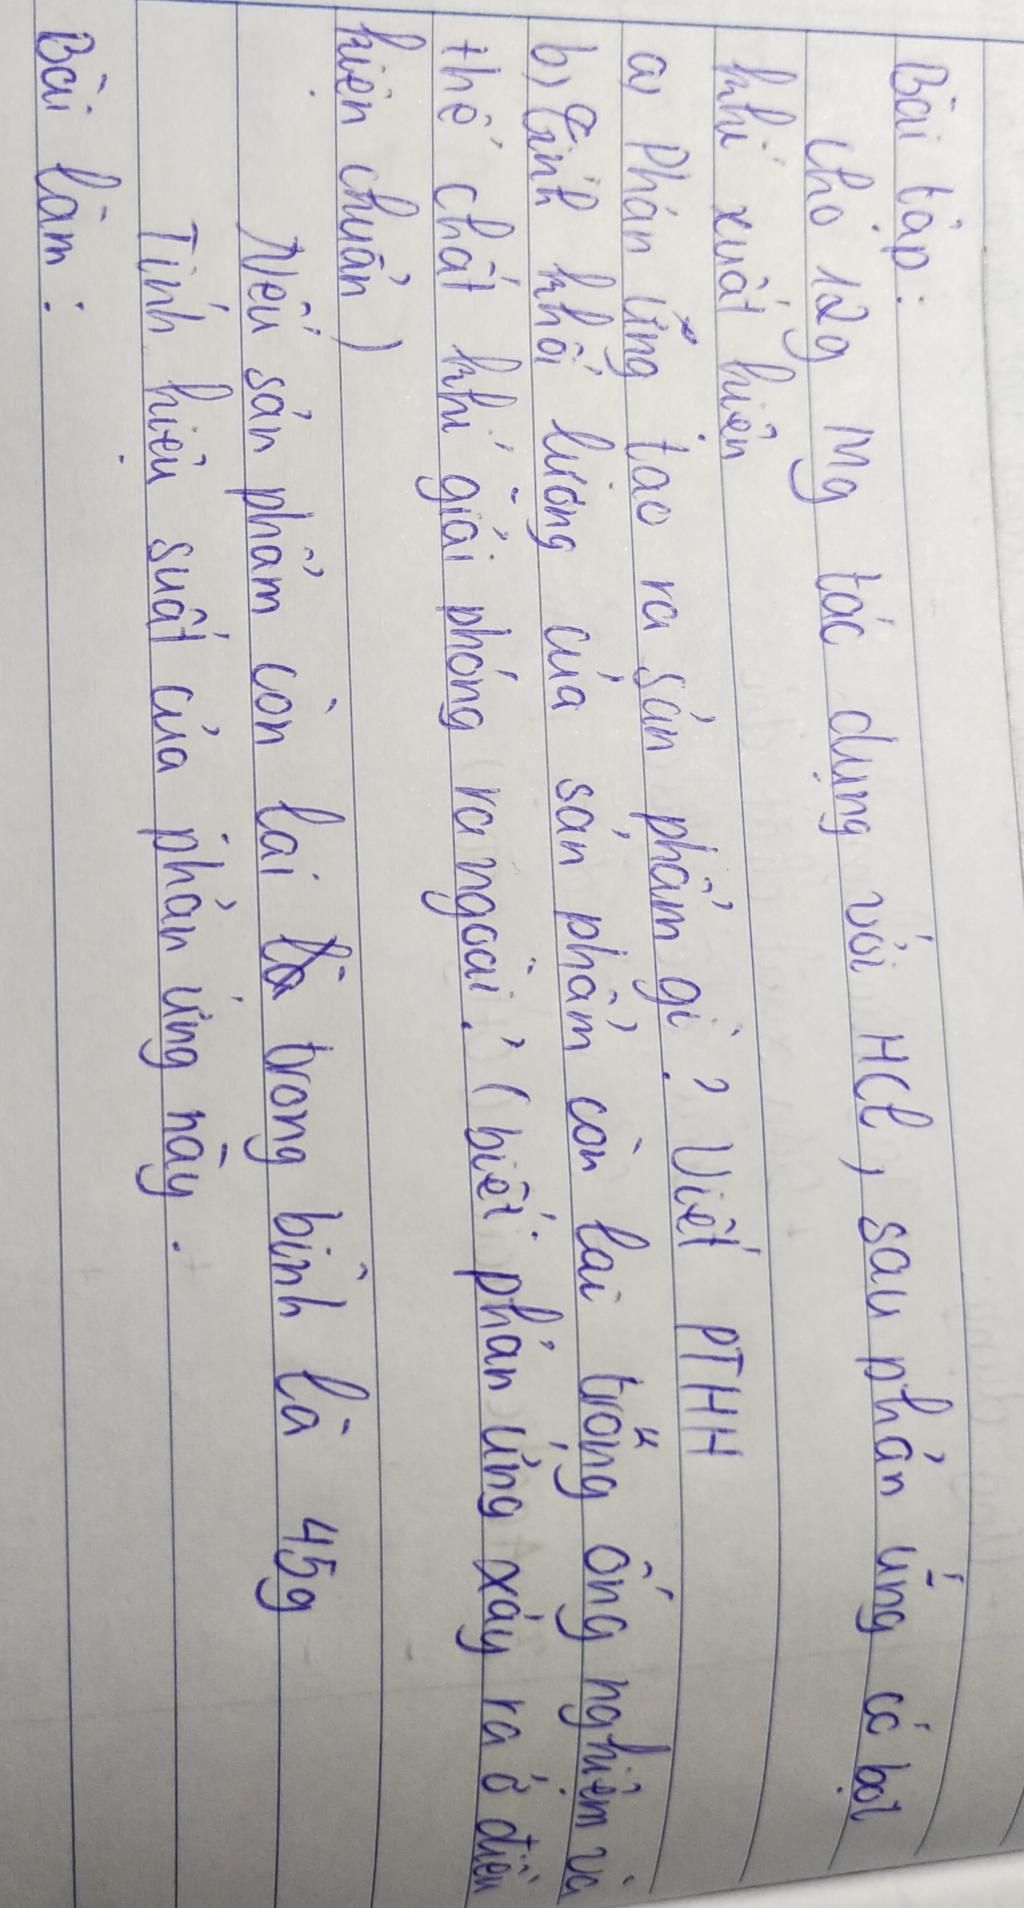 Bài tập:
Cho 12g Mg tác dụng với HCl, sau phản ứng có bọt
khí xuất hiện
a) Phản ứng tạo ra sản phẩm gì? Viết PTHH
b) Tính khối lượng của sản phẩm còn lại trong ống nghiệm và
thể chất khí giải phóng ra ngoài? (biết phản ứng xảy ra ở điều
kiện chuẩn)
Nếu sản phẩm còn lại trong bình là 45g
Tính hiệu suất của phản ứng này.
Bài làm: